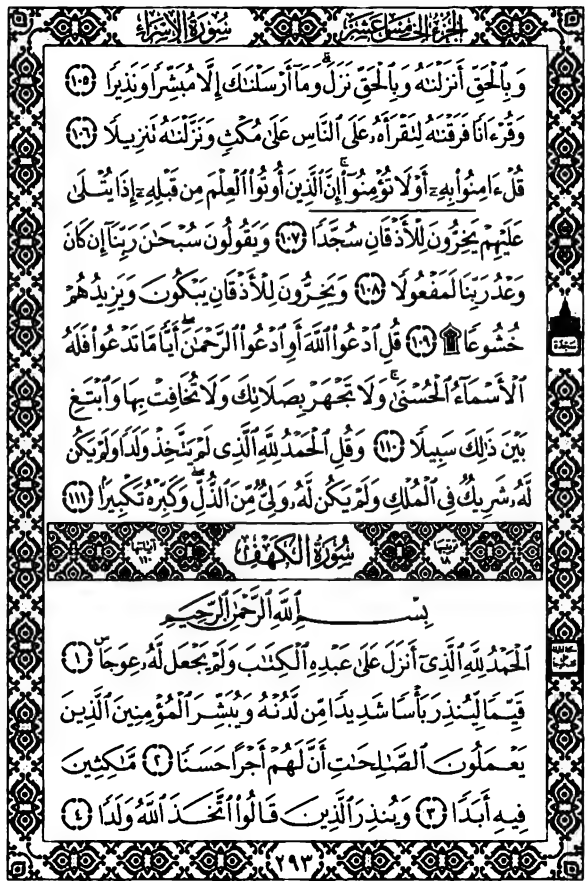 الجزء الخامس عشر سورة الإسراء
وَبِالْحَقِّ أَنزَلْنَٰهُ وَبِالْحَقِّ نَزَلَ ۗ وَمَآ أَرْسَلْنَٰكَ إِلَّا مُبَشِّرًا وَنَذِيرًا ١٠٥
وَقُرْءَانًا فَرَقْنَٰهُ لِتَقْرَأَهُۥ عَلَى النَّاسِ عَلَىٰ مُكْثٍ وَنَزَّلْنَٰهُ تَنزِيلًا ١٠٦
قُلْ ءَامِنُوا۟ بِهِۦٓ أَوْ لَا تُؤْمِنُوٓا۟ ۚ إِنَّ الَّذِينَ أُوتُوا۟ الْعِلْمَ مِن قَبْلِهِۦٓ إِذَا يُتْلَىٰ
عَلَيْهِمْ يَخِرُّونَ لِلْأَذْقَانِ سُجَّدًا ١٠٧ وَيَقُولُونَ سُبْحَٰنَ رَبِّنَآ إِن كَانَ
وَعْدُ رَبِّنَا لَمَفْعُولًا ١٠٨ وَيَخِرُّونَ لِلْأَذْقَانِ يَبْكُونَ وَيَزِيدُهُمْ
خُشُوعًا ۩ ١٠٩ قُلِ ادْعُوا۟ اللَّهَ أَوِ ادْعُوا۟ الرَّحْمَٰنَ ۖ أَيًّا مَّا تَدْعُوا۟ فَلَهُ
الْأَسْمَآءُ الْحُسْنَىٰ ۚ وَلَا تَجْهَرْ بِصَلَاتِكَ وَلَا تُخَافِتْ بِهَا وَابْتَغِ
بَيْنَ ذَٰلِكَ سَبِيلًا ١١٠ وَقُلِ الْحَمْدُ لِلَّهِ الَّذِى لَمْ يَتَّخِذْ وَلَدًا وَلَمْ يَكُن
لَّهُۥ شَرِيكٌ فِى الْمُلْكِ وَلَمْ يَكُن لَّهُۥ وَلِىٌّ مِّنَ الذُّلِّ ۖ وَكَبِّرْهُ تَكْبِيرًۢا ١١١
ترتيبها ١٨ سُورَةُ الكَهْفِ آياتها ١١٠
بِسْمِ اللَّهِ الرَّحْمَٰنِ الرَّحِيمِ
الْحَمْدُ لِلَّهِ الَّذِىٓ أَنزَلَ عَلَىٰ عَبْدِهِ الْكِتَٰبَ وَلَمْ يَجْعَل لَّهُۥ عِوَجَا ۜ ١
قَيِّمًا لِّيُنذِرَ بَأْسًا شَدِيدًا مِّن لَّدُنْهُ وَيُبَشِّرَ الْمُؤْمِنِينَ الَّذِينَ
يَعْمَلُونَ الصَّٰلِحَٰتِ أَنَّ لَهُمْ أَجْرًا حَسَنًا ٢ مَّٰكِثِينَ
فِيهِ أَبَدًا ٣ وَيُنذِرَ الَّذِينَ قَالُوا۟ اتَّخَذَ اللَّهُ وَلَدًا ٤
سجدة
٢٩٣